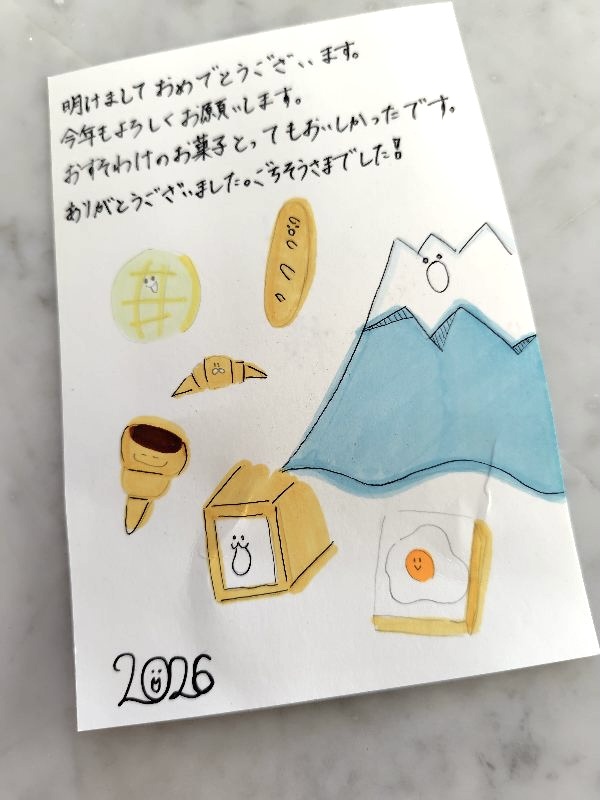 明けまして おめでとうございます。
今年もよろしくお願いします。
おすそわけのお菓子とってもおいしかったです。
ありがとうございました。ごちそうさまでした!
2026